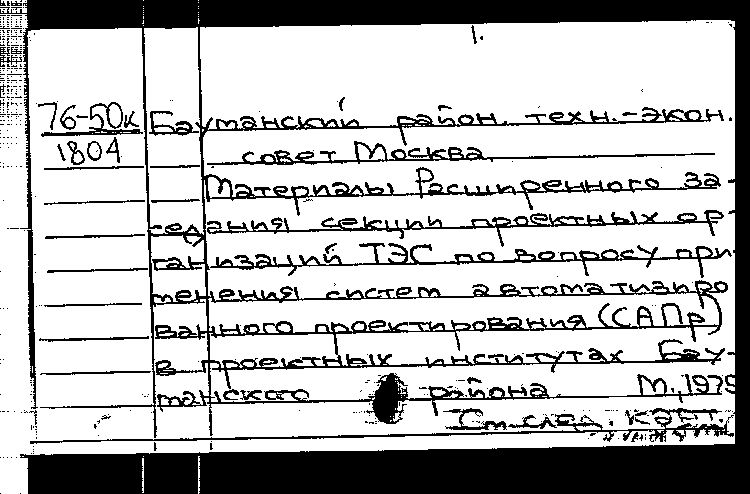 1.
76-50к Бауманский район. техн.-экон.
1804 совет Москва.
Материалы Расширенного за-
седания секции проектных ор-
ганизаций ТЭС по вопросу при-
менения систем автоматизиро
ванного проектирования (САПр)
в проектных институтах Бау-
манского района. М., 1975
См. след. карт.